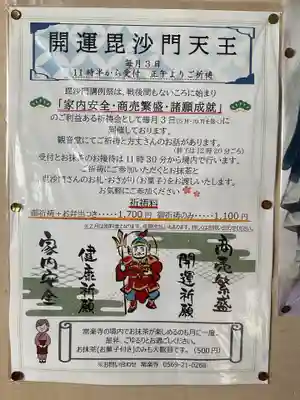 開運毘沙門天王
毎月3日
11時半から受付 正午よりご祈祷
毘沙門講例祭は、戦後間もないころに始まり
「家内安全・商売繁盛・諸願成就」
のご利益ある祈祷会として毎月3日
に開催しております。
観音堂にてご祈祷と方丈さんのお話があります。
受付とお抹茶のお接待は11時30分から境内で行います。
ご祈祷にご参加いただくとお抹茶と
毘沙門さんのお札・おさがり(お菓子)をお渡しいたします。
お気軽にご参加ください
祈祷料
御祈祷+お弁当つき 1,700円 御祈祷のみ 1,100円
商売繁盛
開運祈願
健康祈願
家内安全
常楽寺の境内でお抹茶が楽しめるのも月に一度、
是非、ごゆるりとお過ごしください。
お抹茶(お菓子付き)のみも大歓迎です。(500円)
※お問い合わせ 常楽寺 0569-21-0268